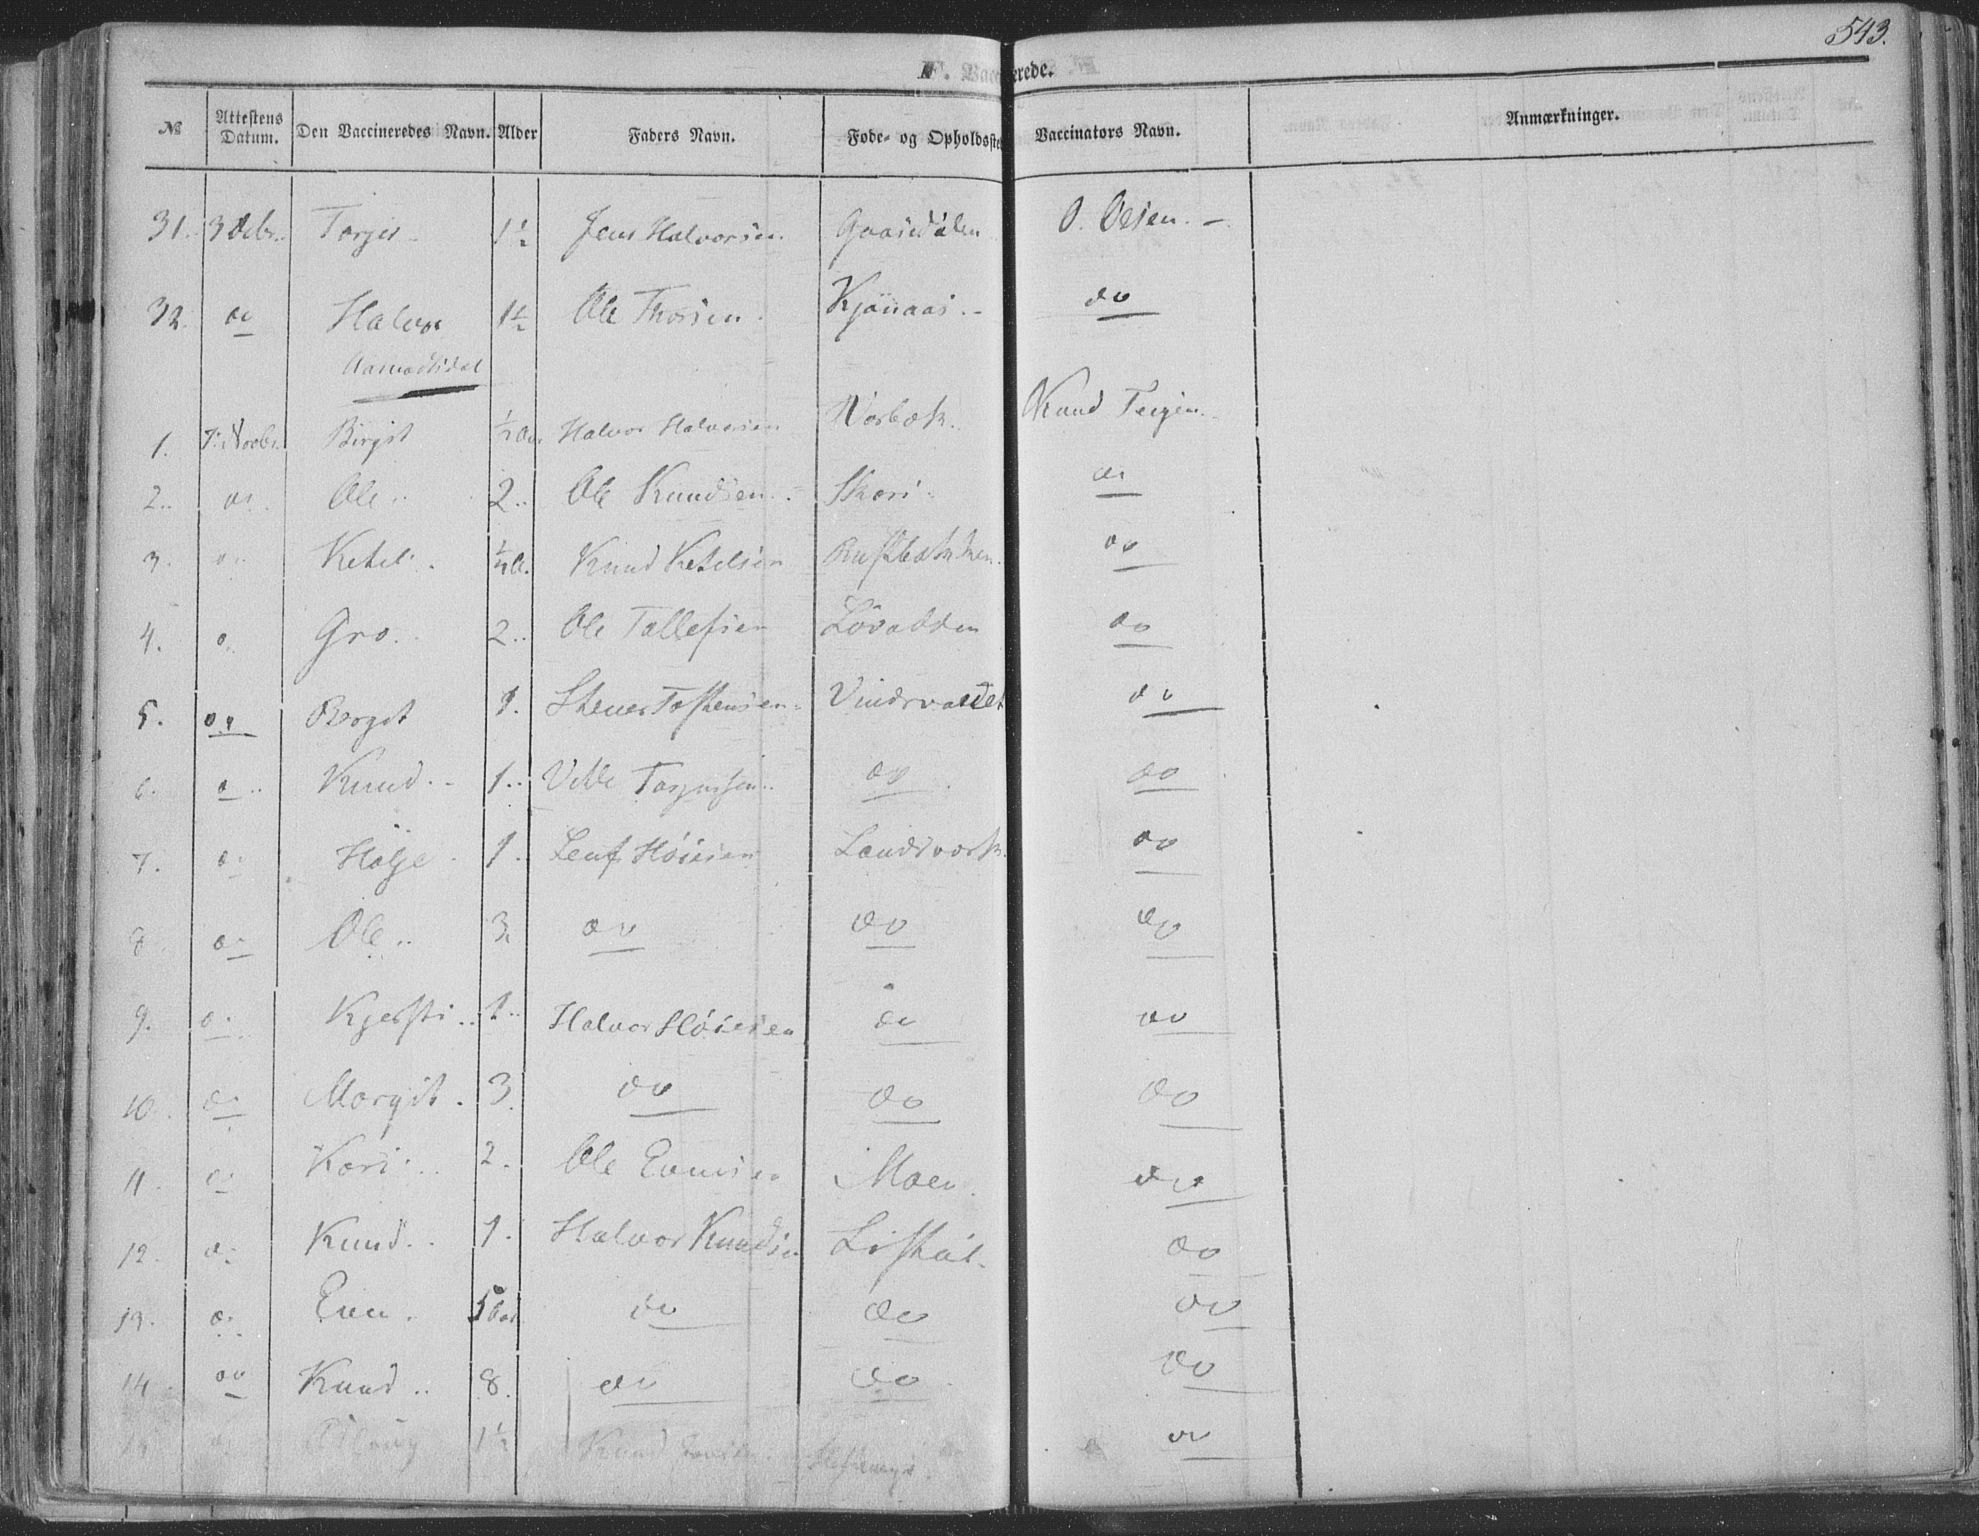 543.
F. Vaccinerede.
№ | Attestens Datum. | Den Vaccineredes Navn. | Alder | Faders Navn. | Føde- og Opholdsste | Vaccinators Navn. | Anmærkninger.
31. | 3 Decbr. | Torger | 1½ | Jens Halvorsen | Gaasedalen | O. Olsen. -
32. | do | Halvor | 1½ | Ole Thorsen. | Kjønaas. - | do
Aamodtsdal
1. | 7. Novbr. | Birgit | ½ | Halvor Halvorsen | Norbøk. | Knud Tergen.
2.. | do. | Ole.. | 2.. | Ole Knudsen. | Skori. | do
3. | do. | Ketel. | ½ | Knud Ketelsen | Rustbakken. | do
4. | do. | Gro. | 2.. | Ole Tallefsen | Løvodden | do
5. | do | Borgit | 1. | Stener Tostensen. | Vindsvallet | do
6. | do.. | Knud.. | 1.. | Vetle Torgersen.. | do | do
7. | do | Hølje. | 1. | Leuf Høiesen | Landsvork. | do
8. | do | Ole.. | 3. | do | do | do
9. | do. | Kjersti.. | 1.. | Halvor Høiesen | do | do
10. | do. | Morgit. | 3. | do | do | do
11. | do. | Kori.. | 2. | Ole Evensen | Moen. | do
12. | do. | Knud.. | 1. | Halvor Knudsen | Liståt. | do
13. | do. | Even. | 5 | do | do | do
14. | do | Knud.. | 8. | do | do. | do
15 | do | 1½ | Knud | do